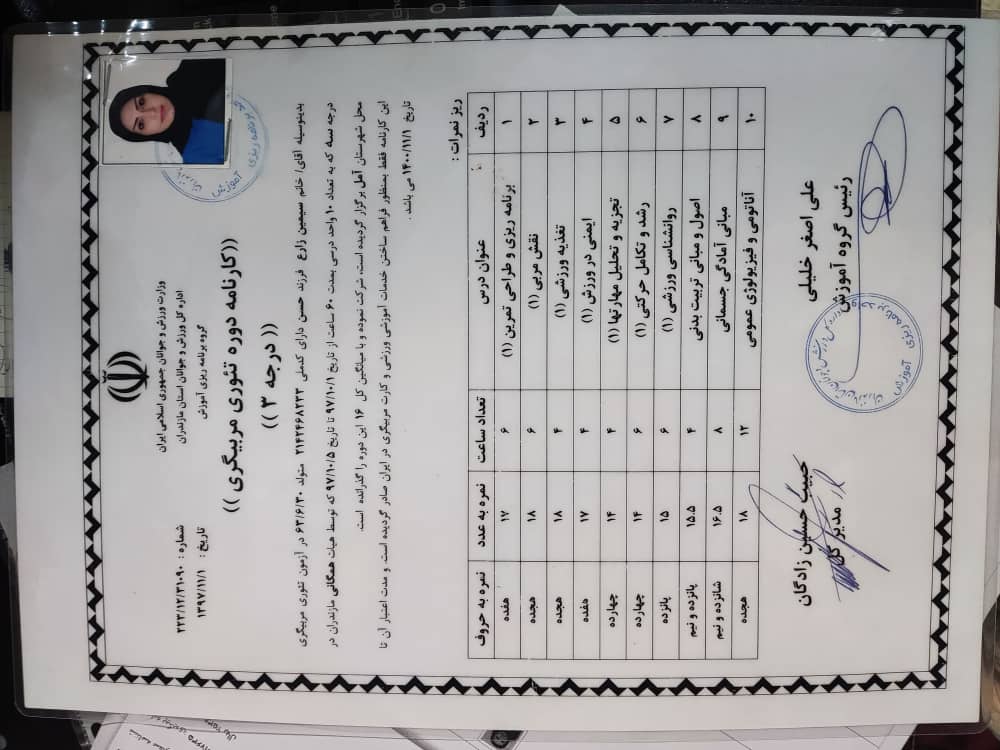 وزارت ورزش و جوانان جمهوری اسلامی ایران
اداره کل ورزش و جوانان استان مازندران
گروه برنامه ریزی آموزش
شماره : ۲۲۳/۱۲/۳۱۰۹۰
تاریخ : ۱۳۹۷/۱۱/۱
((کارنامه دوره تئوری مربیگری ))
(( درجه ۳ ))
بدینوسیله آقای/ خانم سیمین زارع فرزند حسن دارای کدملی ۲۱۴۲۴۶۸۲۳۳ متولد ۶۳/۶/۳۰ در آزمون تئوری مربیگری
درجه سه که به تعداد ۱۰ واحد درسی بمدت ۶۰ ساعت از تاریخ ۹۷/۱۰/۱ تا تاریخ ۹۷/۱۰/۵ که توسط هیات همگانی مازندران در
محل شهرستان آمل برگزار گردیده است، شرکت نموده و با میانگین کل ۱۶ این دوره را گذرانده است.
این کارنامه فقط بمنظور فراهم ساختن خدمات آموزشی ورزشی و کارت مربیگری در ایران صادر گردیده است. و مدت اعتبار آن تا
تاریخ ۱۴۰۰/۱۱/۱ می باشد .
ریز نمرات :
ردیف عنوان درس تعداد ساعت نمره به عدد نمره به حروف
۱ برنامه ریزی و طراحی تمرین (۱) ۶ ۱۷ هفده
۲ نقش مربی (۱) ۶ ۱۸ هجده
۳ تغذیه ورزشی (۱) ۴ ۱۸ هجده
۴ ایمنی در ورزش (۱) ۴ ۱۷ هفده
۵ تجزیه و تحلیل مهارتها (۱) ۴ ۱۴ چهارده
۶ رشد و تکامل حرکتی (۱) ۶ ۱۴ چهارده
۷ روانشناسی ورزشی (۱) ۶ ۱۵ پانزده
۸ اصول و مبانی تربیت بدنی ۴ ۱۵.۵ پانزده و نیم
۹ مبانی آمادگی جسمانی ۸ ۱۶.۵ شانزده و نیم
۱۰ آناتومی و فیزیولوژی عمومی ۱۲ ۱۸ هجده
علی اصغر خلیلی
رئیس گروه آموزش
حبیب حسین زادگان
مدیر کل